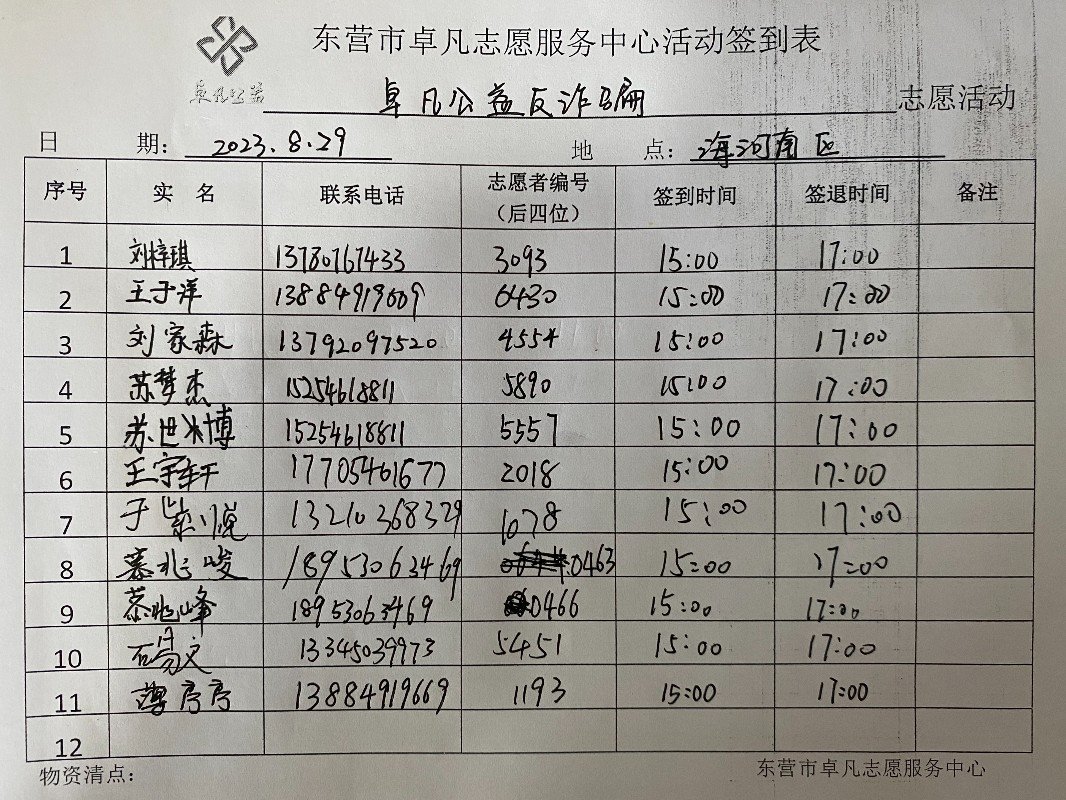 东营市卓凡志愿服务中心活动签到表
卓凡公益
卓凡公益反诈骗 志愿活动
日 期：2023.8.29 地 点：海河南区
序号 实 名 联系电话 志愿者编号（后四位） 签到时间 签退时间 备注
1 刘梓琪 13780767433 3093 15:00 17:00
2 王子洋 13884919609 6430 15:00 17:00
3 刘家森 13792097520 4554 15:00 17:00
4 苏梦杰 15254618811 5890 15:00 17:00
5 苏世博 15254618811 5557 15:00 17:00
6 王宇轩 17705461677 2018 15:00 17:00
7 于紫悦 13210368329 1078 15:00 17:00
8 慕兆峻 18953063469 0463 15:00 17:00
9 慕兆峰 18953063469 0466 15:00 17:00
10 石易文 13345039973 5451 15:00 17:00
11 薄序序 13884919669 1193 15:00 17:00
12
物资清点： 东营市卓凡志愿服务中心